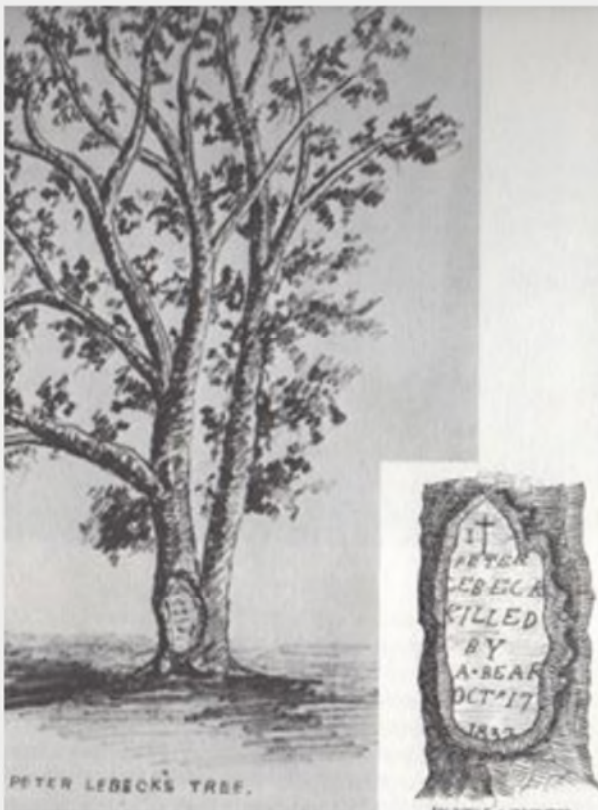 PETER LEBECK'S TREE.
I
PETER
LEBECK
KILLED
BY
A·BEAR
17
1837